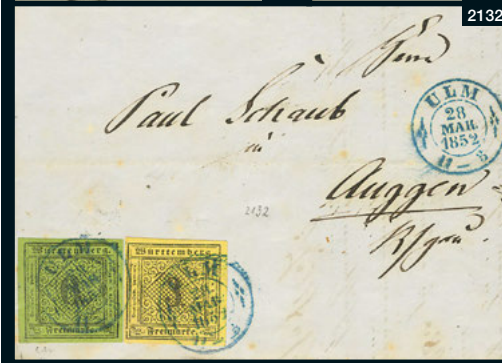 2132
Herrn
Paul Schaub
in
Auggen
ULM
28
MAR.
1852
2132
Württemberg.
Freimarke.
Württemberg.
Freimarke.
ULM
28
MAR.
1852